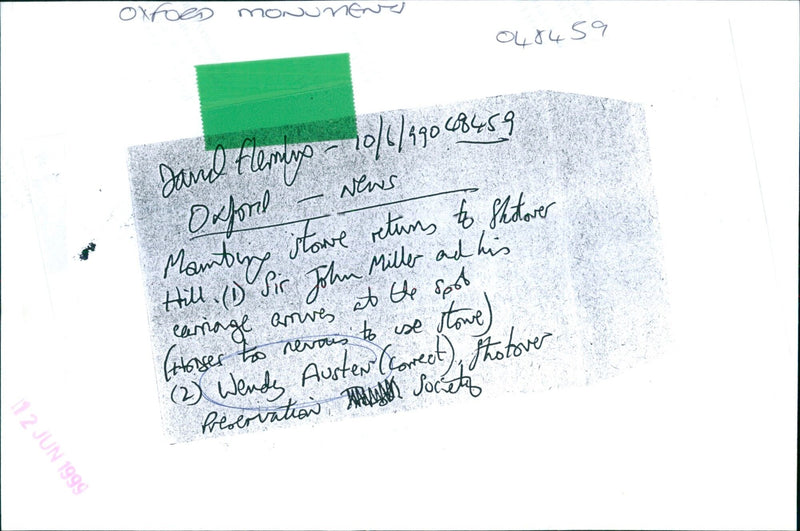 OXFORD MONUMENTS
048459
David Fleming - 10/6/99 048459
Oxford - News
Mounting stone returns to Shotover
Hill. (1) Sir John Miller and his
carriage arrives at the spot
(Horses too nervous to use stone)
(2) Wendy Austen (correct), Shotover
Preservation Society
12 JUN 1999